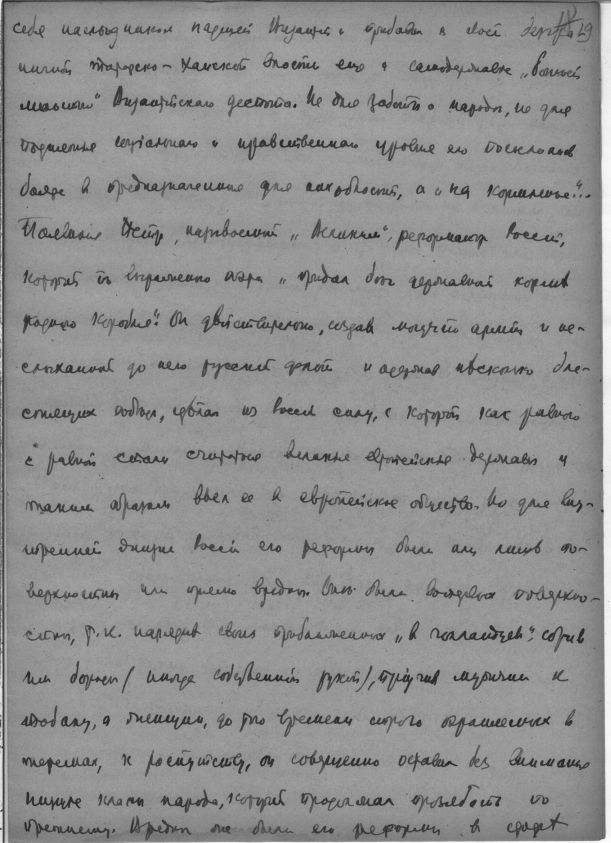 себя наследником падшей Византии и прибавил к своей
ничной татарско-ханской власти еще и самодержавие „Божьей
милостью" Византийского деспота. Не для заботы о народе, не для
поднятия социального и нравственного уровня его
а „на кормление"...
Появился Петр, названный „Великим", реформатор России,
который по выражению „придал бег державный корме
родного корабля". Он действительно, создав могучую армию и не-
слыханный до него русский флот и одержав несколько бле-
стящих побед, сделал из России силу, с которой как равного
с равной стали считаться великие европейские державы и
таким образом ввел ее в европейское общество. Но для вну-
тренней жизни России его реформы были или лишь по-
верхностны или прямо вредны. Они были поверхно-
стны, т.к. нарядив своих приближенных „в голландцев", сбрив
им бороды (иногда собственной рукой), приучив мужчин к
табаку, а женщин, до того времени строго охраняемых в
теремах, к распутству, он совершенно оставил без внимания
низшие классы народа, который продолжал прозябать по
прежнему. Вредны они были его реформы в